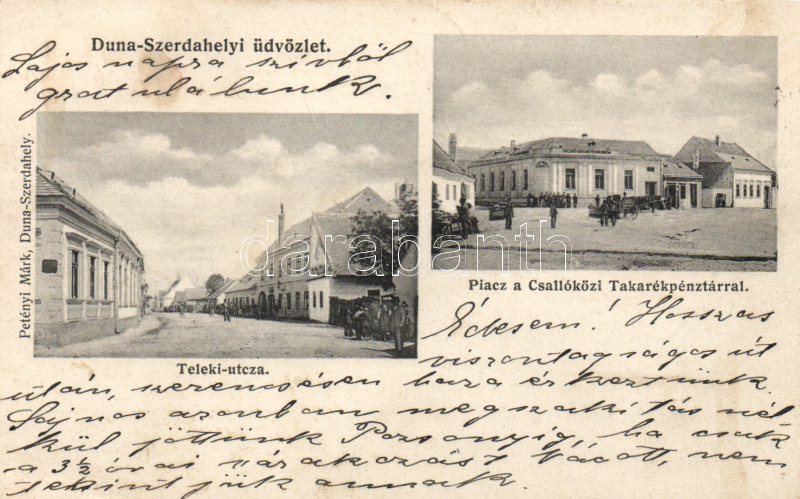 Duna-Szerdahelyi üdvözlet.
Lajos napra szívből
gratulálunk.
Petényi Márk, Duna-Szerdahely.
Teleki-utcza.
Piacz a Csallóközi Takarékpénztárral.
darabanth
Édesem! Hosszas
viszontagságos út
után, szerencsésen haza érkeztünk.
Sajnos azonban megszakítás nél
kül jöttünk Pozsonyig, ha csak
a 3½ órai várakozást Vácott, nem
tekintjük annak.